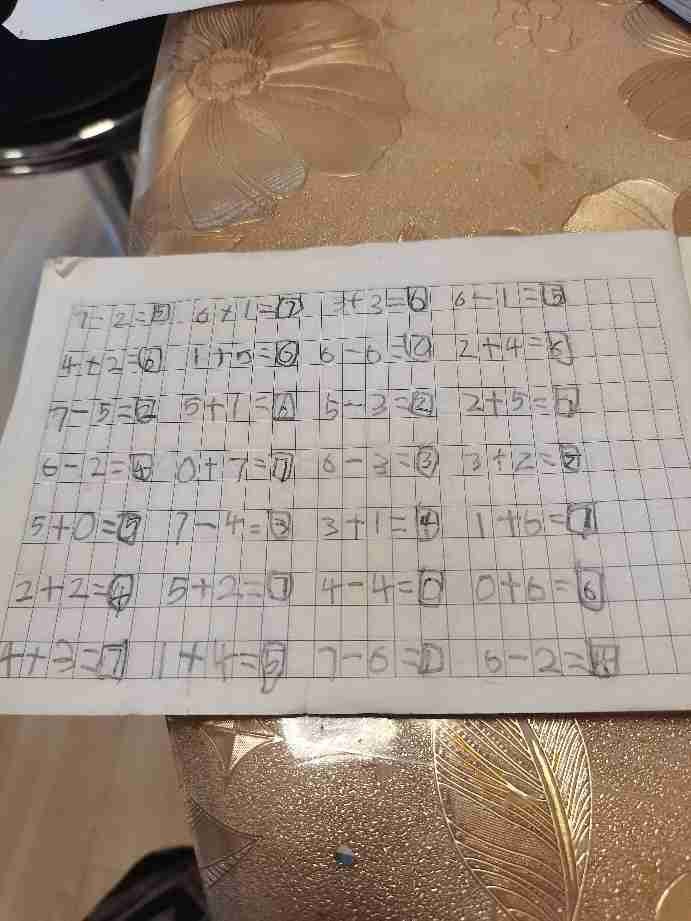 7-2=5 6+1=7 3+3=6 6-1=5
4+2=6 1+5=6 6-6=0 2+4=6
7-5=2 5+1=6 5-3=2 2+5=7
6-2=4 0+7=7 6-3=3 3+2=
5+0=5 7-4=3 3+1=4 1+6=7
2+2=4 5+2=7 4-4=0 0+6=6
4+3=7 1+4=5 7-6=1 6-2=4